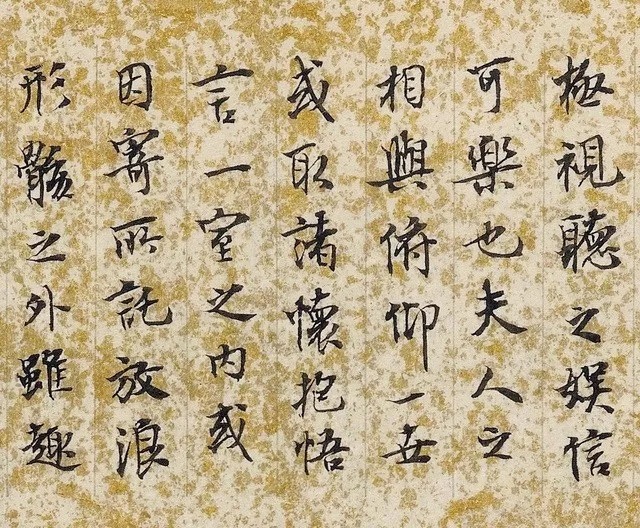 極視聽之娛信
可樂也夫人之
相與俯仰一世
或取諸懷抱悟
言一室之內或
因寄所託放浪
形骸之外雖趣